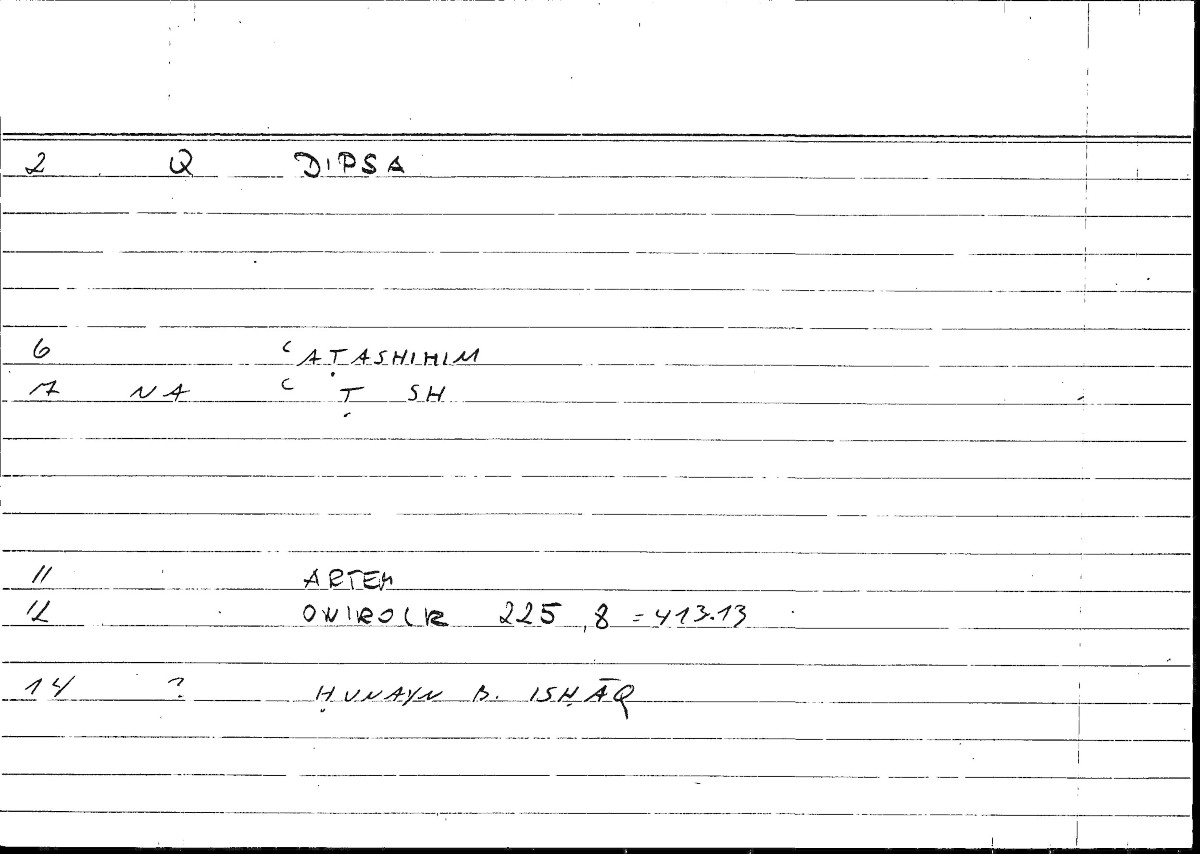 2 Q DIPSA
6 ʿAṬASHIHIM
7 NA ʿ Ṭ SH
11 ARTEM
12 ONIROCR 225,8 = 413.13
14 ? ḤUNAYN B. ISḤĀQ